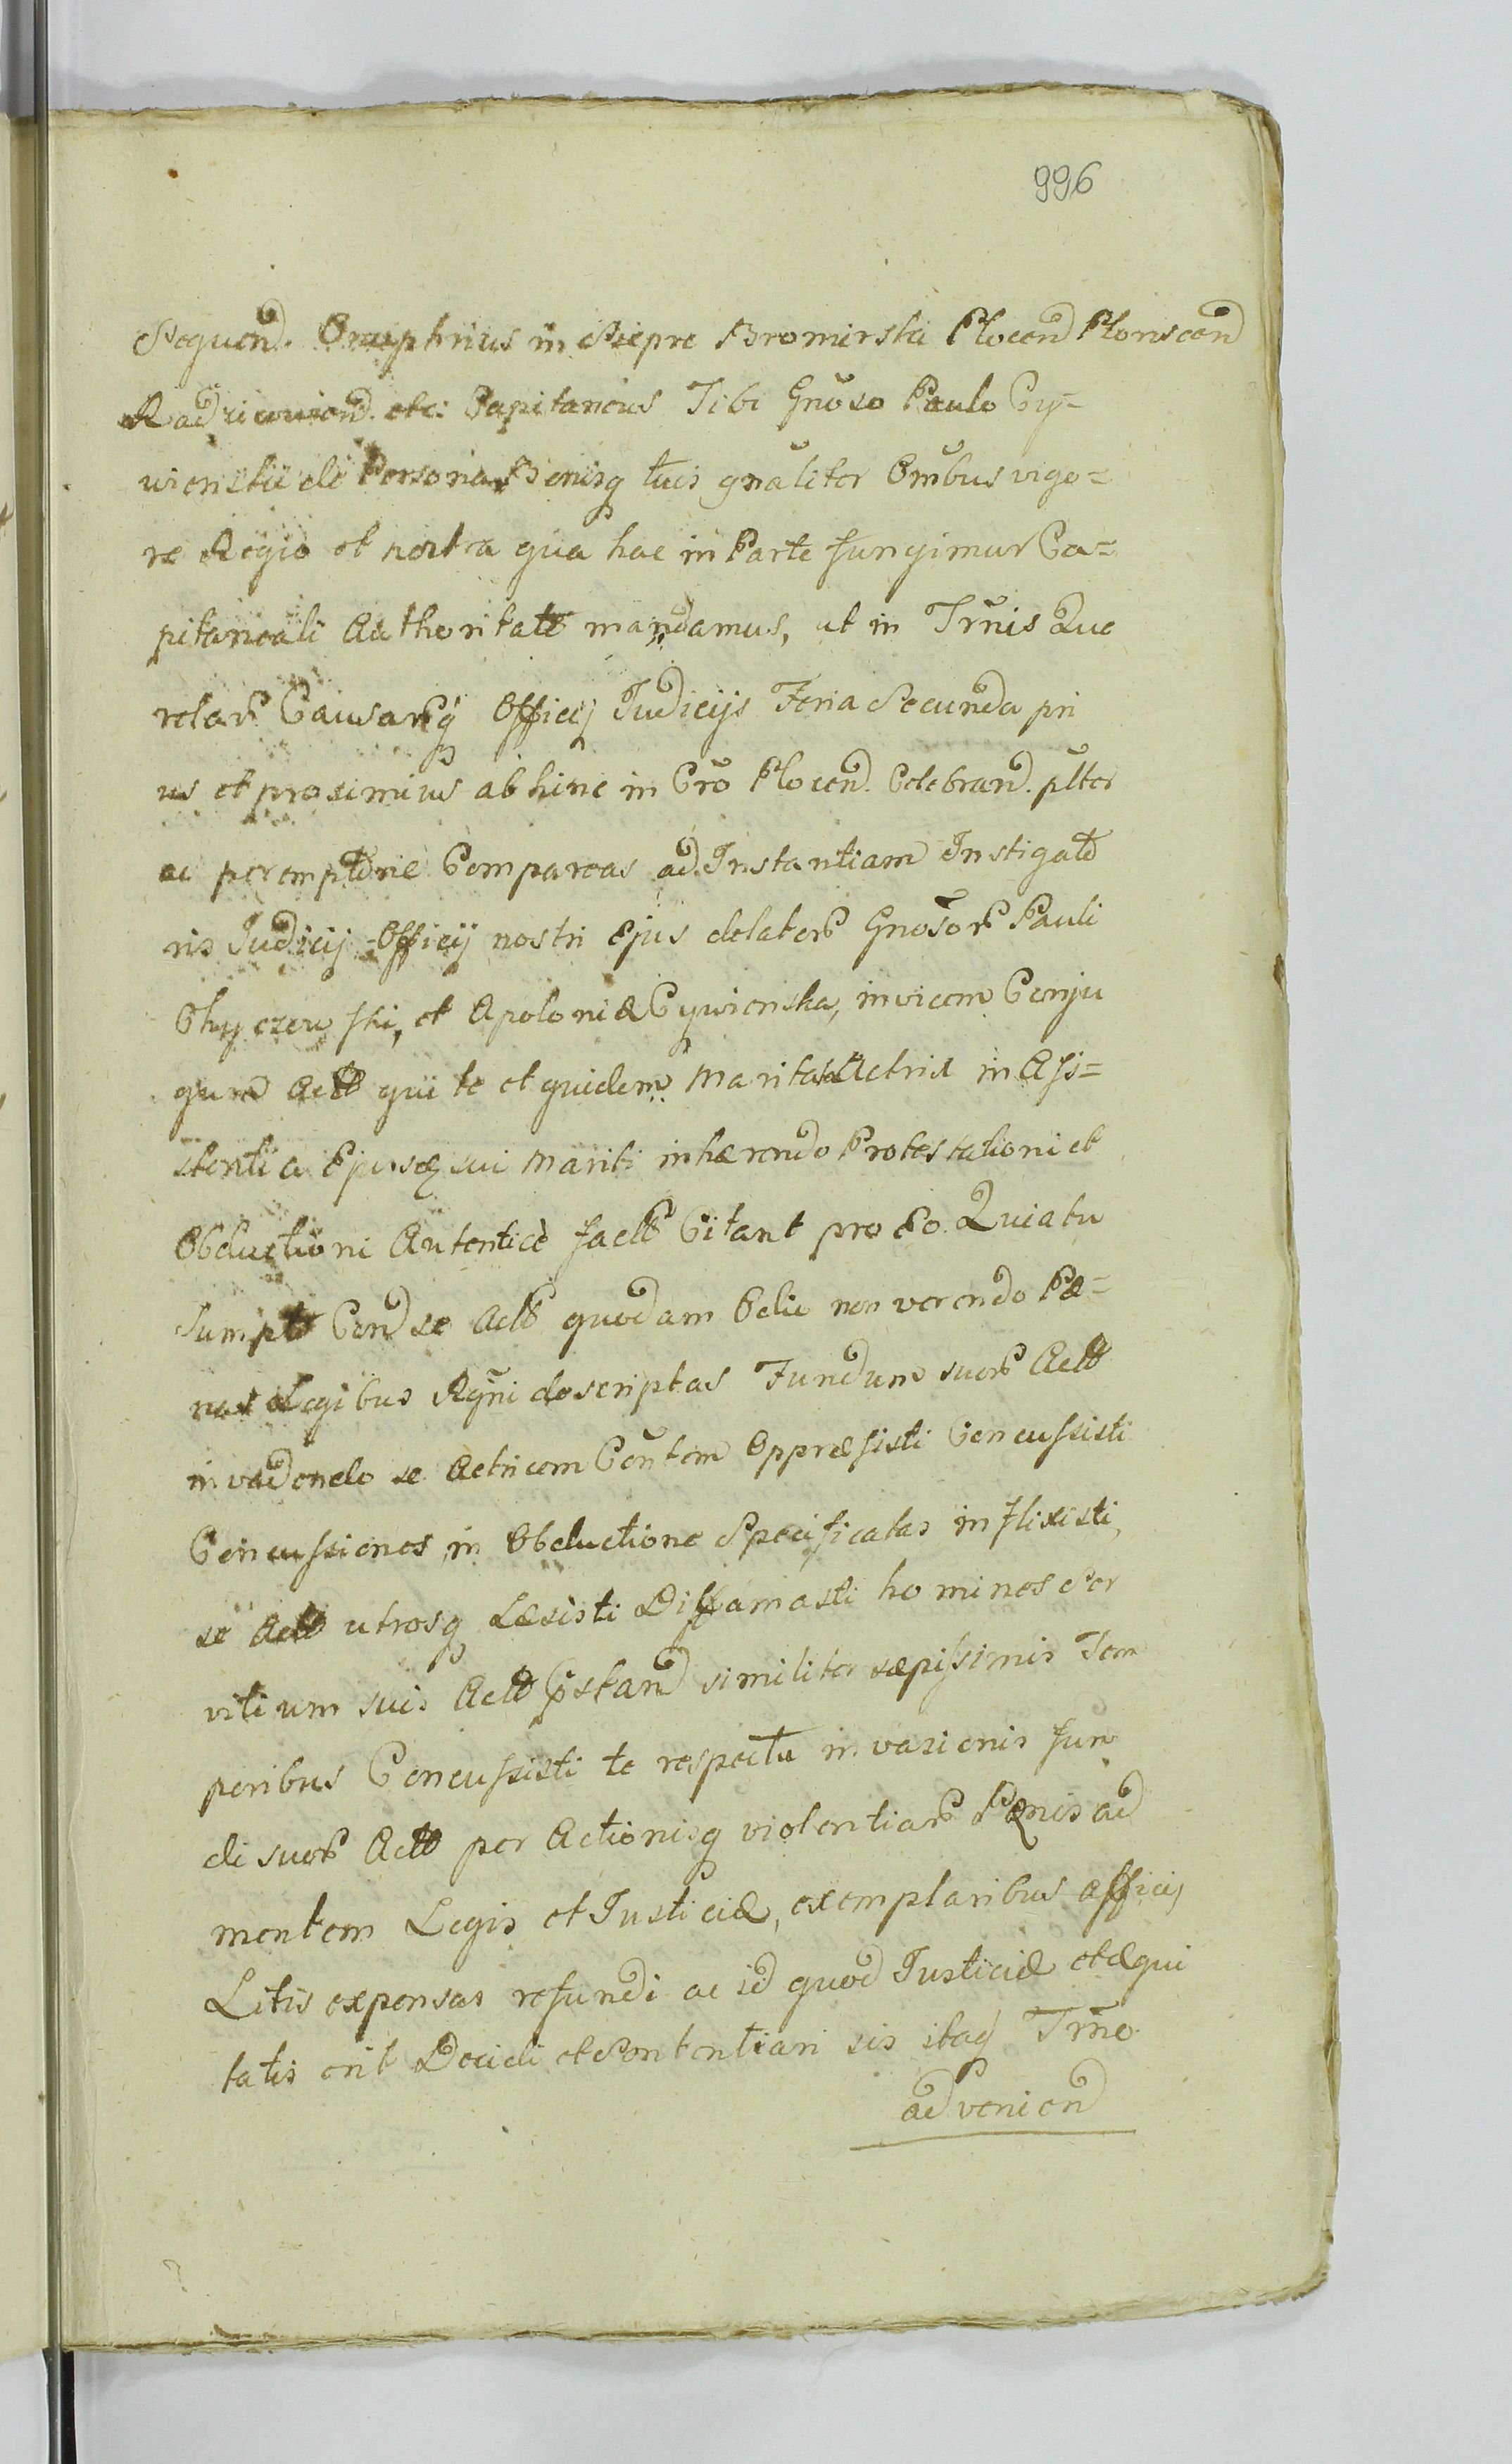 996
Sequend. Onuphrius in Siepre Bromirski Plocend Plonscend
Radzieiovien͠d. etc: Capitaneus Tibi Gnõso Paulo Cy=
wienskii de Persona Bonisq tuis gnãliter Omĩbus vigo=
re Regio et nostra qua hac in Parte fungimur Ca=
pitaneali Authoritate mandamus, ut in Trm̃is Que
relar̃ Causarq̃ Officij Judicijs Feria Secunda pri
us et proximius ab hinc in Crõ Plocen͠d. Celebran͠d. pl̃ter
ac peremptorie Compareas ad Instantiam Instigato
ris Judicij Officij nostri Ejus delator̃ Gnosor̃ Pauli
Chyczew ski, et Apoloniæ Cywienska, invicem Conju
gum Act̃ qui te et quidem Maritata Actrix in Assi=
stentia Ejusdẽ sui Mariti inhærendo Protestationi et
Obductioni Autenticè fact̃ Citant pro Eo Quia tu
Sumpto Con͠d se Act̃ quodam Odio non verendo Pæ=
nas Legibus Rgñi descriptas Fundum suor̃ Act̃
invadendo se Actricem Coñtem Oppræssisti Concussisti
Concussiones in Obductione Specificatas inflixisti,
se Act̃ utrosq Læsisti Diffamasti homines Ser
vitium suis Act̃ Præstan͠d similiter sæpissimis Tem
poribus Concussisti te respectu invasionis fun
di suor̃ Act̃ per Actionisq violentiar̃ Pænis ad
mentem Legis et Justiciæ, exemplaribus affici,
Litis expensas refundi ac id quod Justiciæ et æqui
tatis erit Decidi et Sententiari sis itaq̃ Trm̃o
ad venien͠d